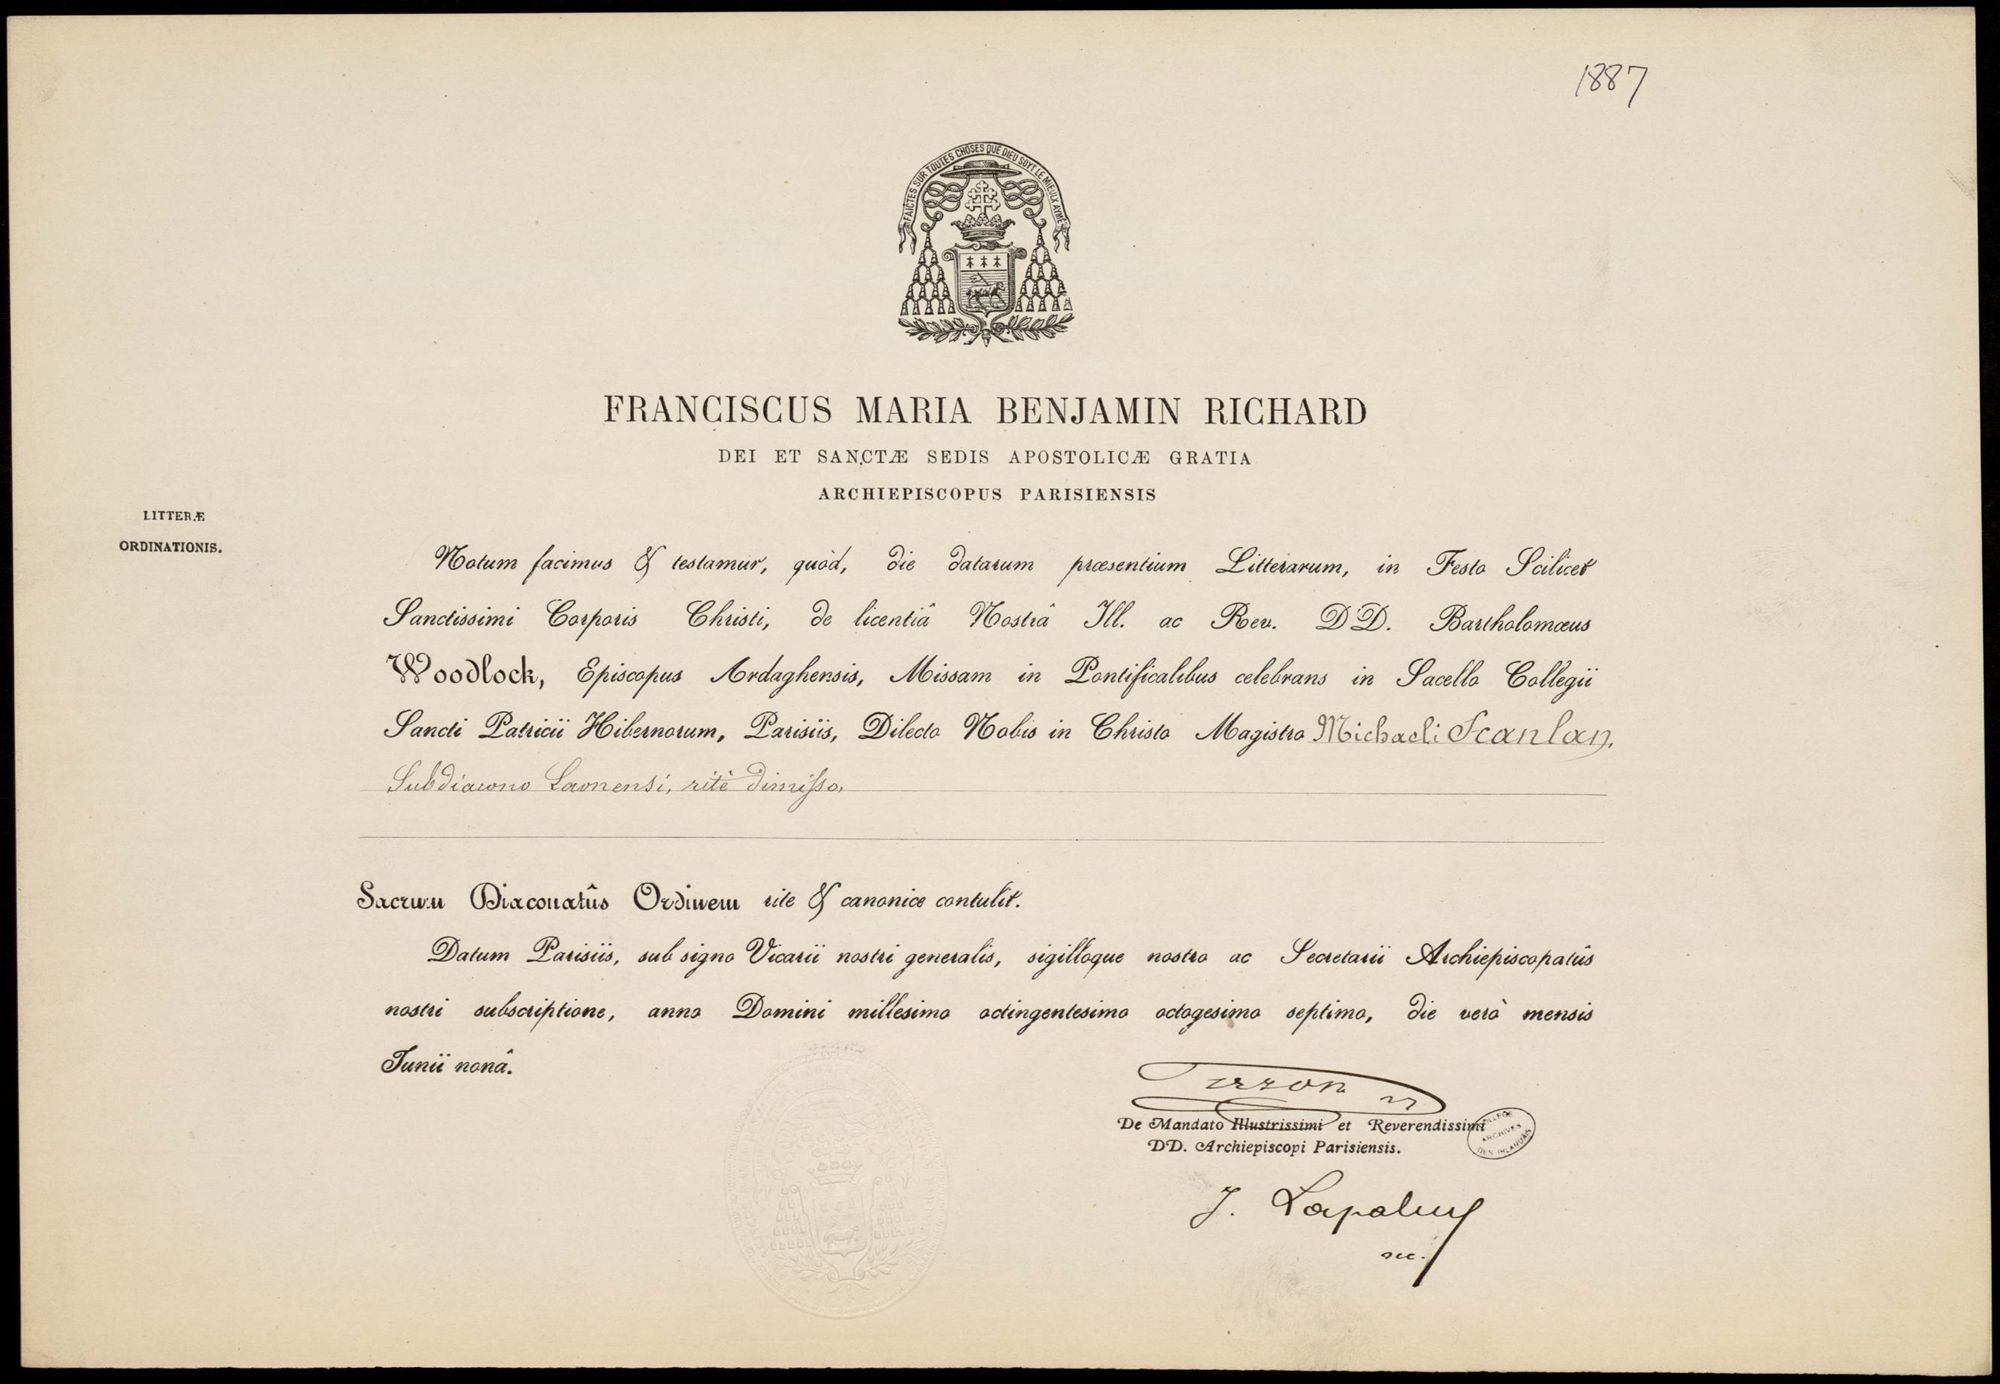 1887
FAICTES SUR TOUTES CHOSES QUE DIEU SOYT LE MIEUX AYMÉ
FRANCISCUS MARIA BENJAMIN RICHARD
DEI ET SANCTÆ SEDIS APOSTOLICÆ GRATIA
ARCHIEPISCOPUS PARISIENSIS
LITTERÆ
ORDINATIONIS.
Notum facimus & testamur, quòd, die datarum præsentium Litterarum, in Festo Scilicet
Sanctissimi Corporis Christi, de licentiâ Nostrâ Ill. ac Rev. DD. Bartholomæus
Woodlock, Episcopus Ardaghensis, Missam in Pontificalibus celebrans in Sacello Collegii
Sancti Patricii Hibernorum, Parisiis, Dilecto Nobis in Christo Magistro Michaeli Scanlan,
Subdiacono Laonensi, ritè dimisso,
Sacrum Diaconatûs Ordinem rite & canonice contulit.
Datum Parisiis, sub signo Vicarii nostri generalis, sigilloque nostro ac Secretarii Archiepiscopatûs
nostri subscriptione, anno Domini millesimo octingentesimo octogesimo septimo, die verò mensis
Junii nonâ.
De Mandato Illustrissimi et Reverendissimi
DD. Archiepiscopi Parisiensis.
COLLEGE
ARCHIVES
DES IRLANDAIS
J.